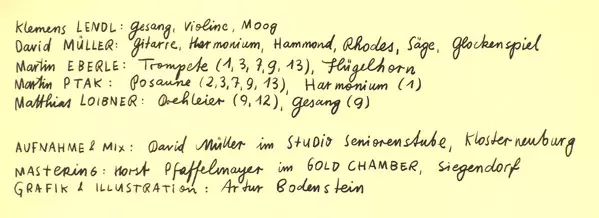 Klemens LENDL: Gesang, Violine, Moog
David MÜLLER: Gitarre, Harmonium, Hammond, Rhodes, Säge, Glockenspiel
Martin EBERLE: Trompete (1, 3, 7, 9, 13), Flügelhorn
Martin PTAK: Posaune (2, 3, 7, 9, 13), Harmonium (1)
Matthias LOIBNER: Drehleier (9, 12), Gesang (9)
AUFNAHME & MIX: David Müller im STUDIO Seniorenstube, Klosterneuburg
MASTERING: Horst Pfaffelmayer im GOLD CHAMBER, Siegendorf
GRAFIK & ILLUSTRATION: Artur Bodenstein